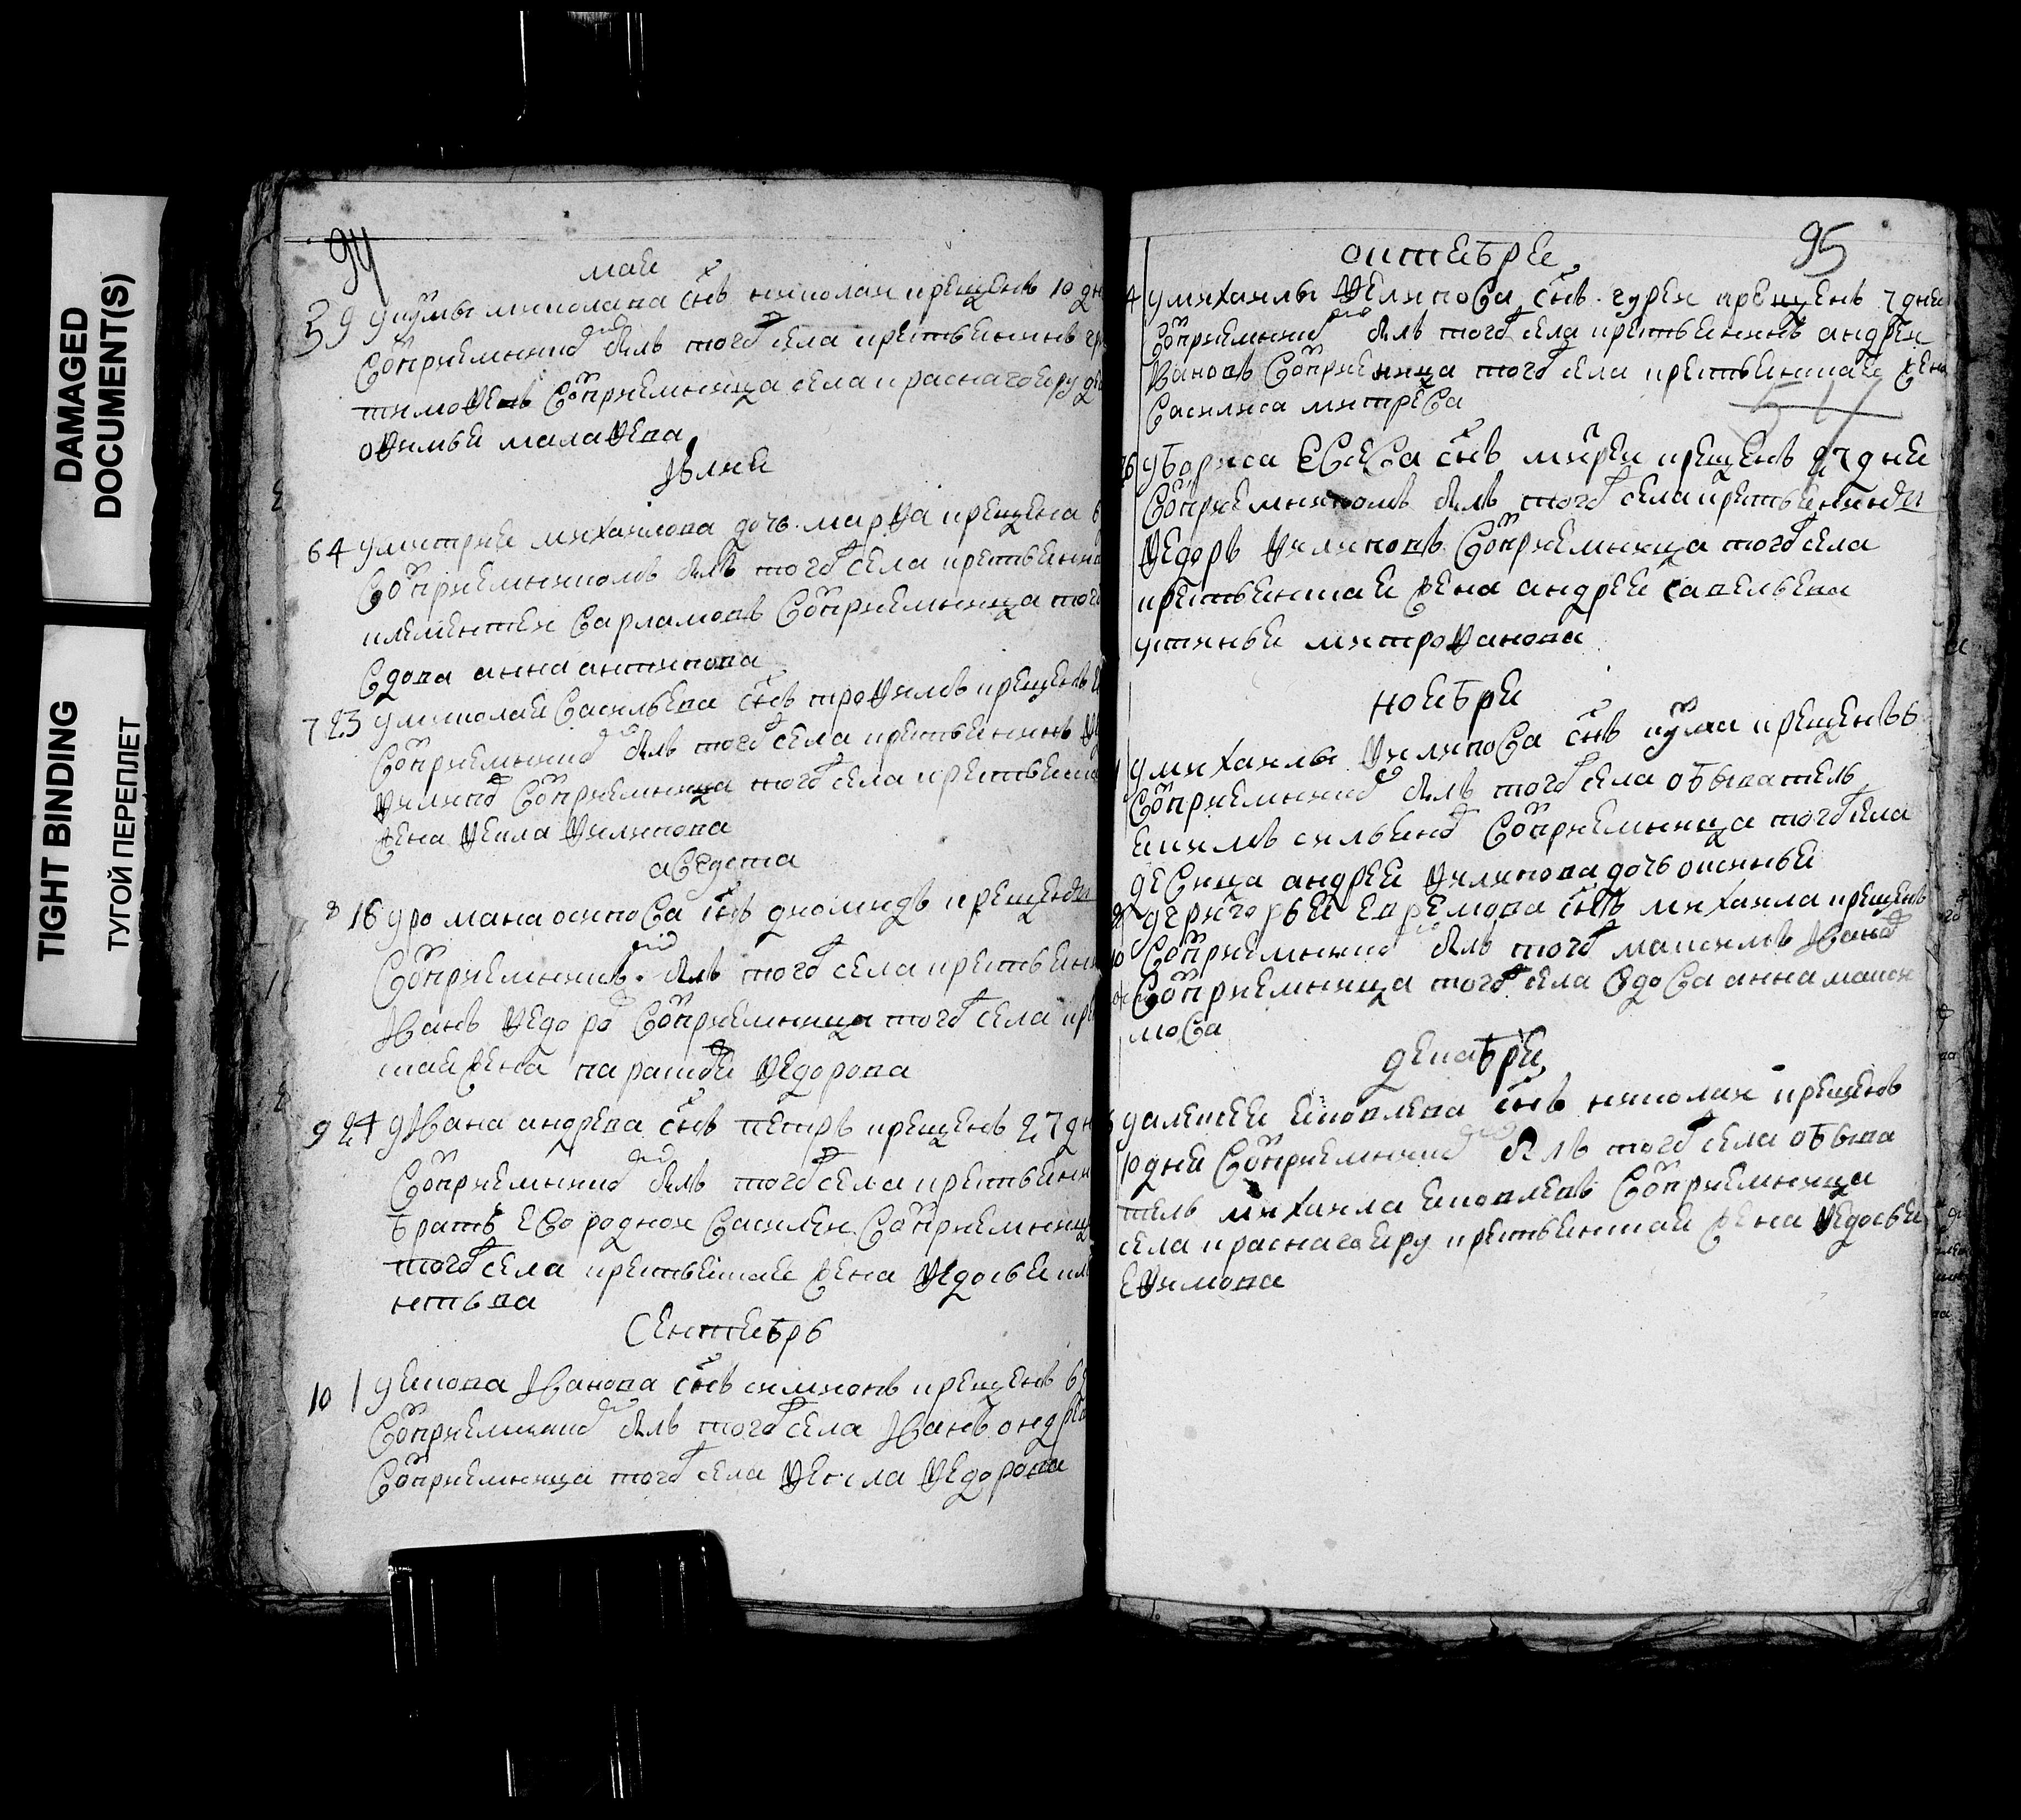 DAMAGED
DOCUMENT(S)
TIGHT BINDING
ТУГОЙ ПЕРЕПЛЕТ
94
маи
5 9 у кузмы николаева снъ николаи крещенъ 10 дн
восприемникъ былъ того села крестьянинъ
тимофеевъ восприемница села краснаго яру
офимья малафеева
июля
6 4 у митрия михаилова дочь марфа крещена 6
восприемникомъ былъ того села крестьянин
клементеи варламовъ восприемница того
вдова анна антипова
7 23 у николая васильева снъ трофимъ крещенъ
восприемникъ былъ того села крестьянинъ
филипъ восприемница того села крестьян
жена фекла филипова
августа
8 16 у романа осипова снъ диомидъ крещенъ
восприемникъ былъ того села крестьян
иванъ федоровъ восприемница того села кре
жена парасковья федорова
9 24 у ивана андреева снъ петръ крещенъ 27 дн
восприемникъ былъ того села крестьян
братъ ево роднои василеи восприемниц
того села крестьянская жена федосья кле
ньтьва
сентябрь
10 1 у якова иванова снъ симионъ крещенъ 6
восприемникъ былъ того села иванъ андре
восприемница того села фекла федорова
95
октября
4 у михаилы филипова снъ гуреи крещенъ 7 дня
восприемникъ былъ того села крестьянинъ андреи
ивановъ восприемница того села крестьянская жена
василиса митрева
26 у бориса евсева снъ крещенъ 27 дня
восприемникомъ былъ того села крестьянинъ
федоръ филиповъ восприемница того села
крестьянская жена андрея савельева
устинья митрофанова
ноября
1 у михаилы филипова снъ кузма крещенъ 6
восприемникъ былъ того села обыватель
екимъ восприемница того села
девица андрея филипова дочь
8 у григорья ефремова снъ михаила крещенъ
10 восприемникъ былъ того максимъ ивановъ
восприемница того села вдова анна макси
мова
декабря
6 у алексея яковлева снъ николаи крещенъ
10 дня восприемникъ былъ того села обыва
тель михаила яковлевъ восприемница
села краснаго яру крестьянская жена федосья
ефимова